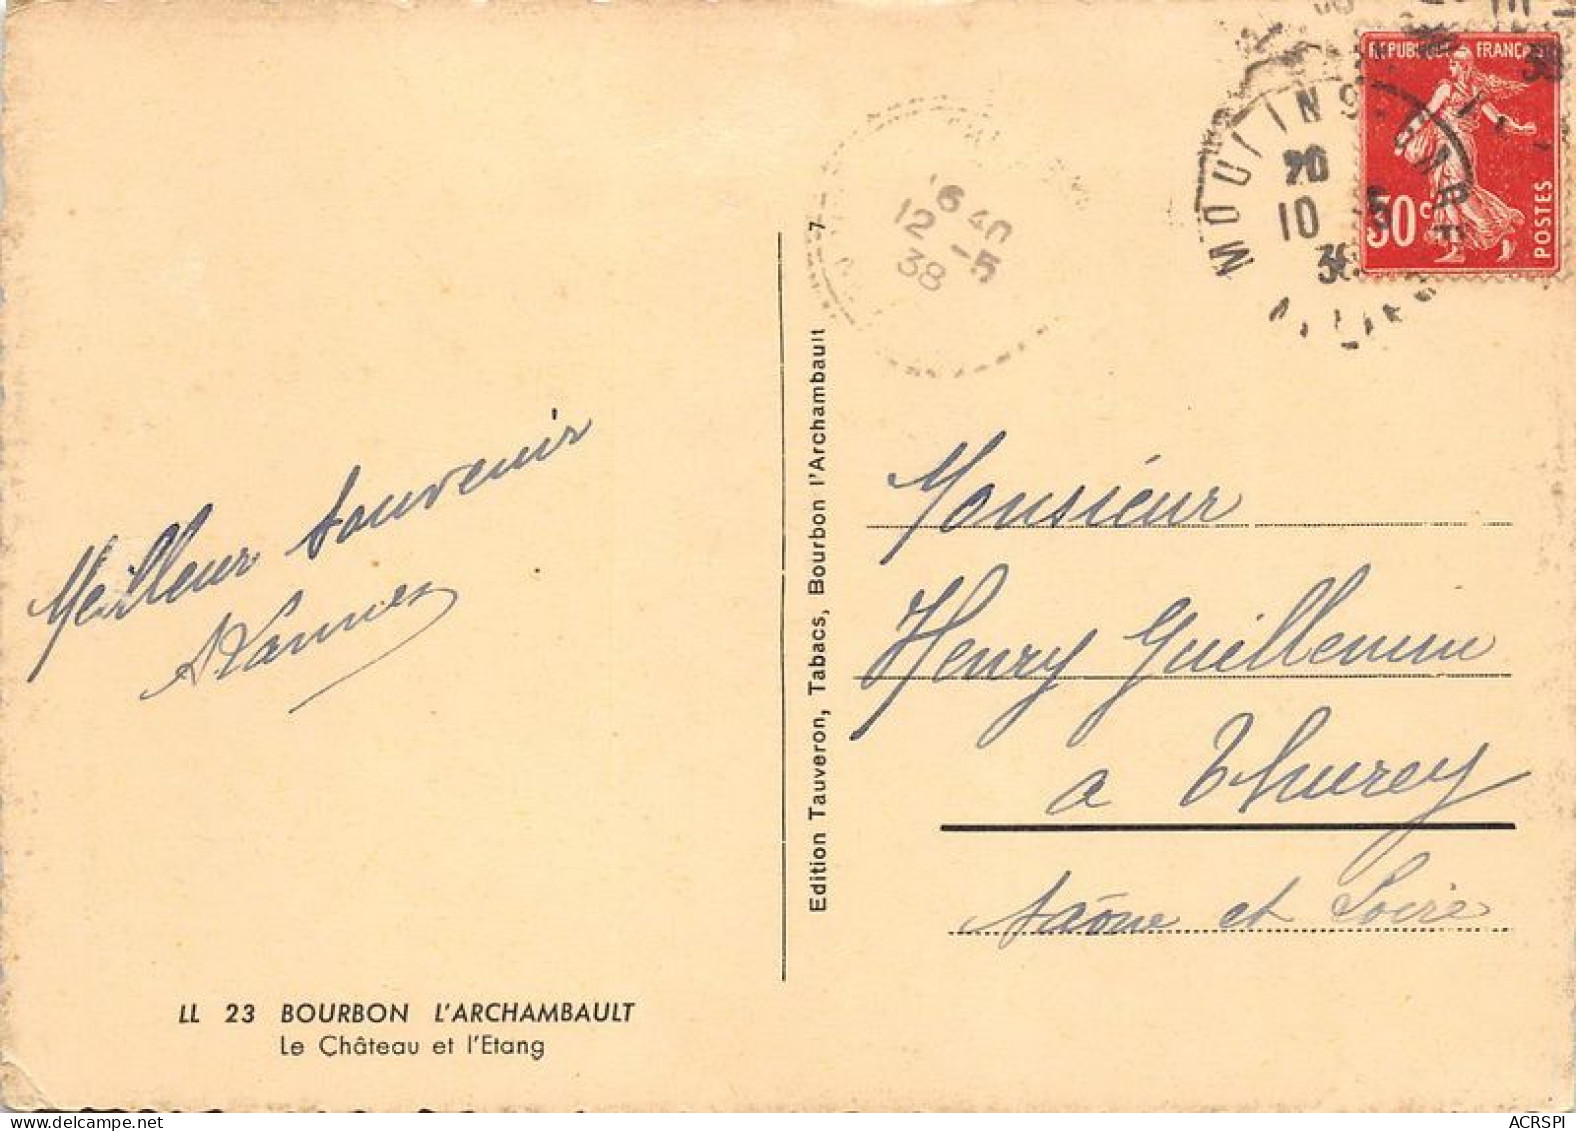 Meilleur souvenir
Monsieur
Henry Guillemin
a Thurey
Saône et Loire
LL 23 BOURBON L'ARCHAMBAULT
Le Château et l'Etang
Edition Tauveron, Tabacs, Bourbon l'Archambault 7
REPUBLIQUE FRANÇAISE
50c
POSTES
MOULINS-GARE
20
10 5
38
ALLIER
16 40
12 -5
38
ACRSPI